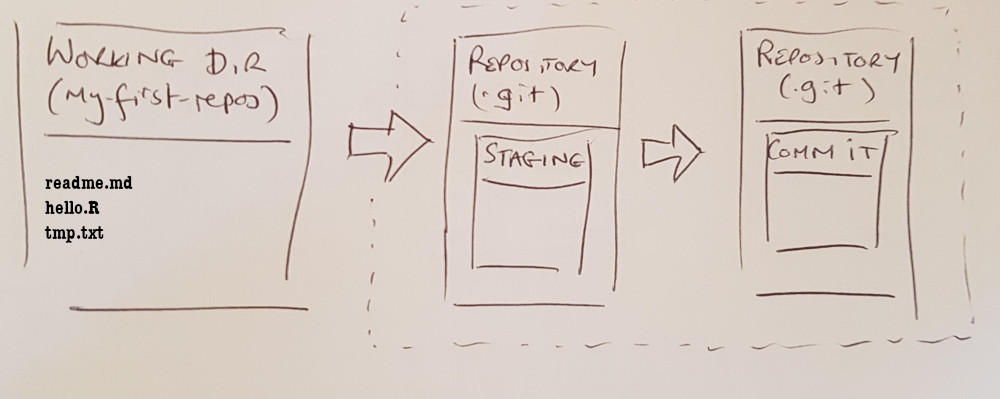 WORKING DIR
(My-first-repos)
readme.md
hello.R
tmp.txt
REPOSITORY
(.git)
STAGING
REPOSITORY
(.git)
COMMIT